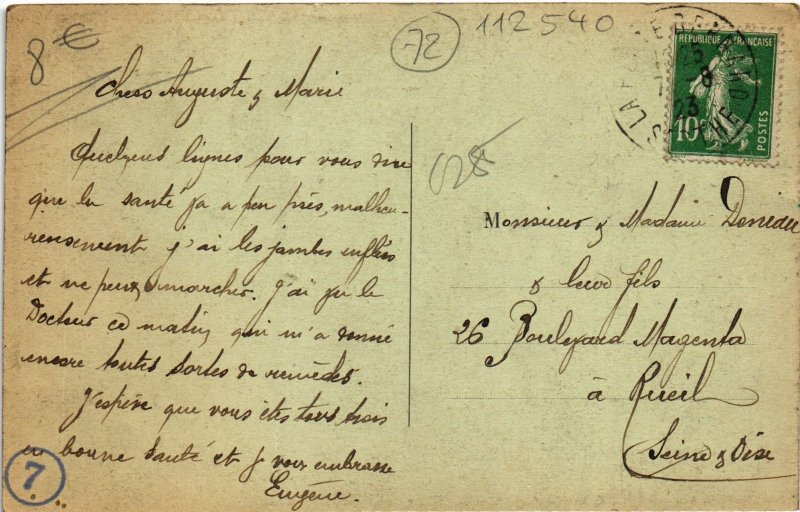 8€
72
112540
RÉPUBLIQUE FRANÇAISE
10c
POSTES
23
SARTHE
028
Chers Auguste & Marie
Quelques lignes pour vous dire
que la santé ça a peu près, malheu-
reusement j'ai les jambes enflées
et ne peux marcher. J'ai vu le
Docteur ce matin, qui m'a donné
encore toutes sortes de remèdes.
J'espère que vous êtes tous trois
en bonne santé et je vous embrasse
Eugène.
7
Monsieur & Madame
& leur fils
26 Boulevard Magenta
à Rueil
Seine & Oise